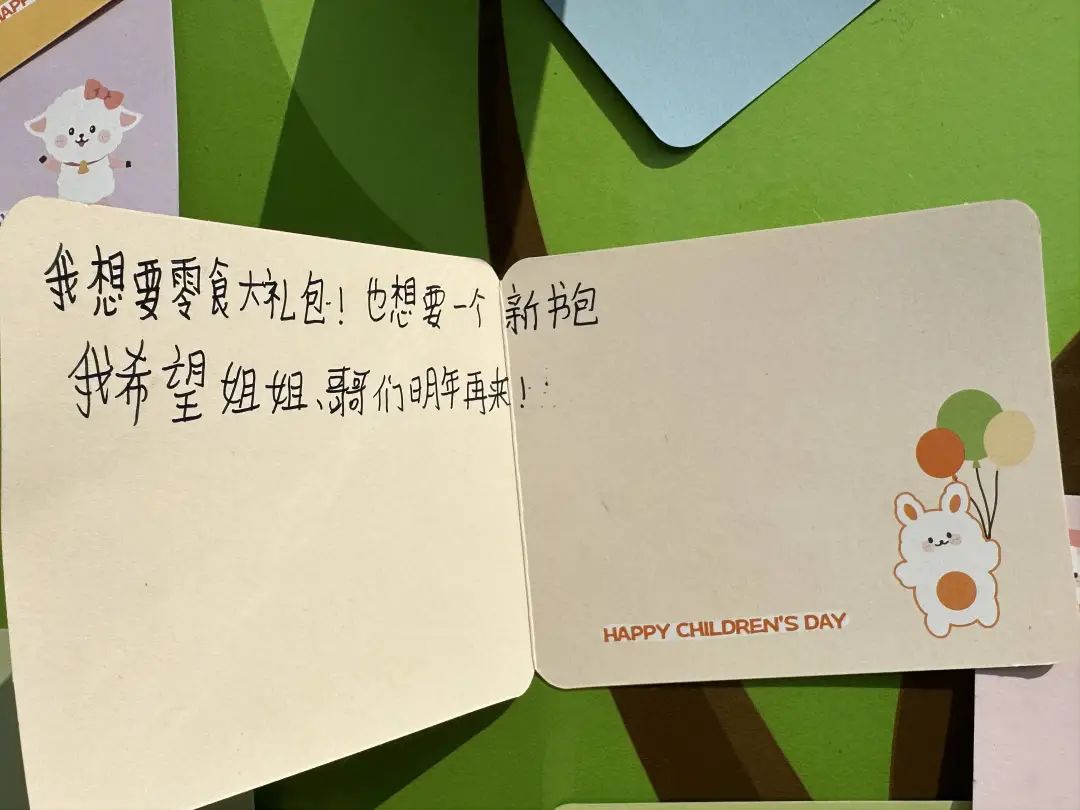 我想要零食大礼包！也想要一个新书包
我希望姐姐、哥哥们明年再来！
HAPPY CHILDREN'S DAY